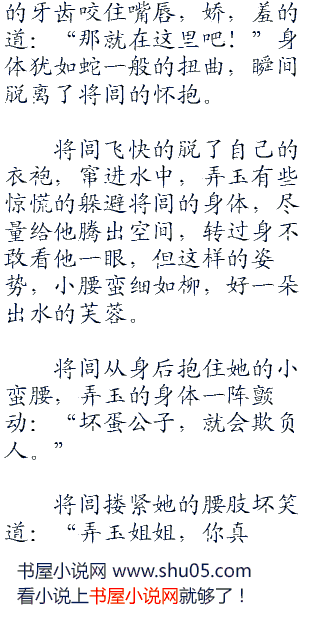 的牙齿咬住嘴唇，娇，羞的
道：“那就在这里吧！”身
体犹如蛇一般的扭曲，瞬间
脱离了将闾的怀抱。
将闾飞快的脱了自己的
衣袍，窜进水中，弄玉有些
惊慌的躲避将闾的身体，尽
量给他腾出空间，转过身不
敢看他一眼，但这样的姿
势，小腰蛮细如柳，好一朵
出水的芙蓉。
将闾从身后抱住她的小
蛮腰，弄玉的身体一阵颤
动：“坏蛋公子，就会欺负
人。”
将闾搂紧她的腰肢坏笑
道：“弄玉姐姐，你真
书屋小说网 www.shu05.com
看小说上书屋小说网就够了！